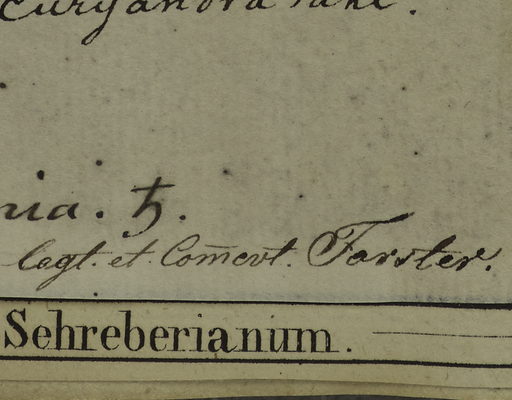 curyandra Mihi.
nia. ♄.
legt. et Com̅evt. Forster.
Sehreberianum.